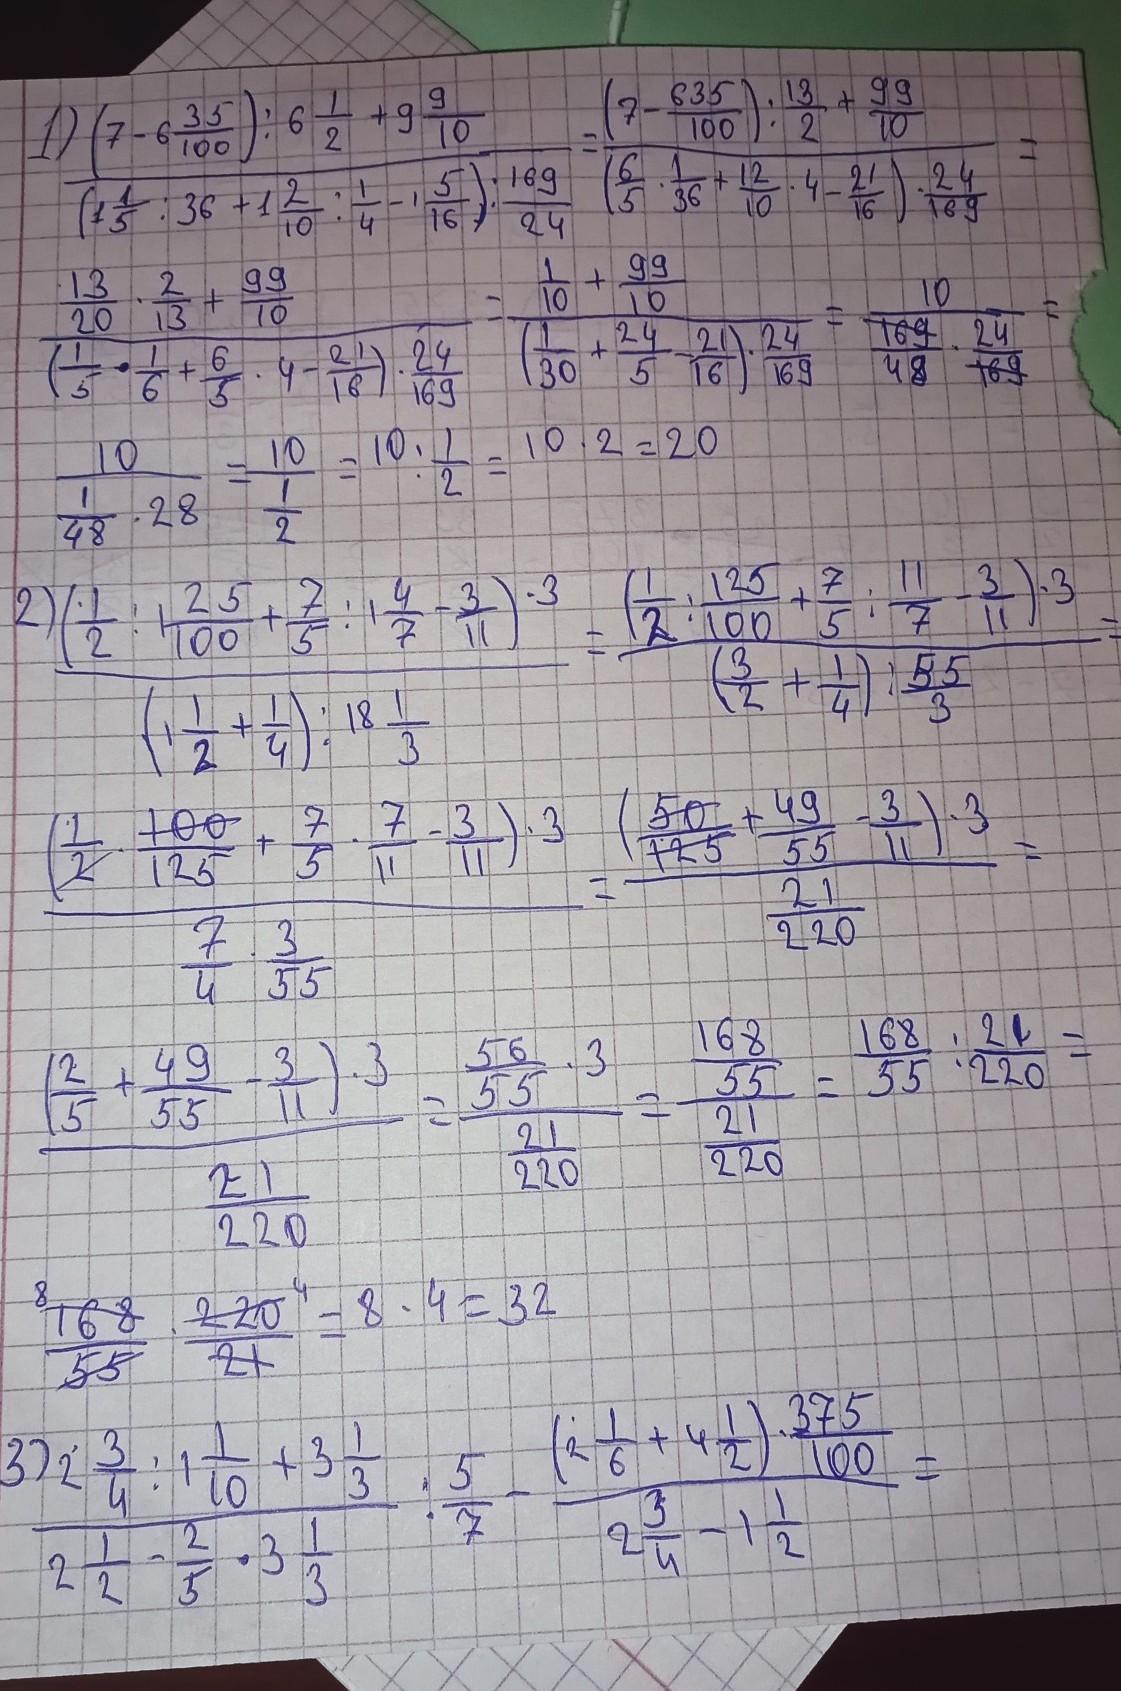 1) ((7 - 6 35/100) : 6 1/2 + 9 9/10) / ((1 1/5 : 36 + 1 2/10 : 1/4 - 1 5/16) : 169/24) = ((7 - 635/100) : 13/2 + 99/10) / ((6/5 · 1/36 + 12/10 · 4 - 21/16) · 24/169) =
(13/20 · 2/13 + 99/10) / ((1/5 · 1/6 + 6/5 · 4 - 21/16) · 24/169) = (1/10 + 99/10) / ((1/30 + 24/5 - 21/16) · 24/169) = 10 / (169/48 · 24/169) =
10 / (1/48 · 28) = 10 / (1/2) = 10 : 1/2 = 10 · 2 = 20
2) ((1/2 : 1 25/100 + 7/5 : 1 4/7 - 3/11) · 3) / ((1 1/2 + 1/4) : 18 1/3) = ((1/2 : 125/100 + 7/5 : 11/7 - 3/11) · 3) / ((3/2 + 1/4) : 55/3) =
((1/2 · 100/125 + 7/5 · 7/11 - 3/11) · 3) / (7/4 · 3/55) = ((50/125 + 49/55 - 3/11) · 3) / (21/220) =
((2/5 + 49/55 - 3/11) · 3) / (21/220) = (56/55 · 3) / (21/220) = (168/55) / (21/220) = 168/55 : 21/220 =
8 168/55 · 220/21 4 = 8 · 4 = 32
3) (2 3/4 : 1 1/10 + 3 1/3) / (2 1/2 - 2/5 · 3 1/3) : 5/7 - ((2 1/6 + 4 1/2) · 375/100) / (2 3/4 - 1 1/2) =